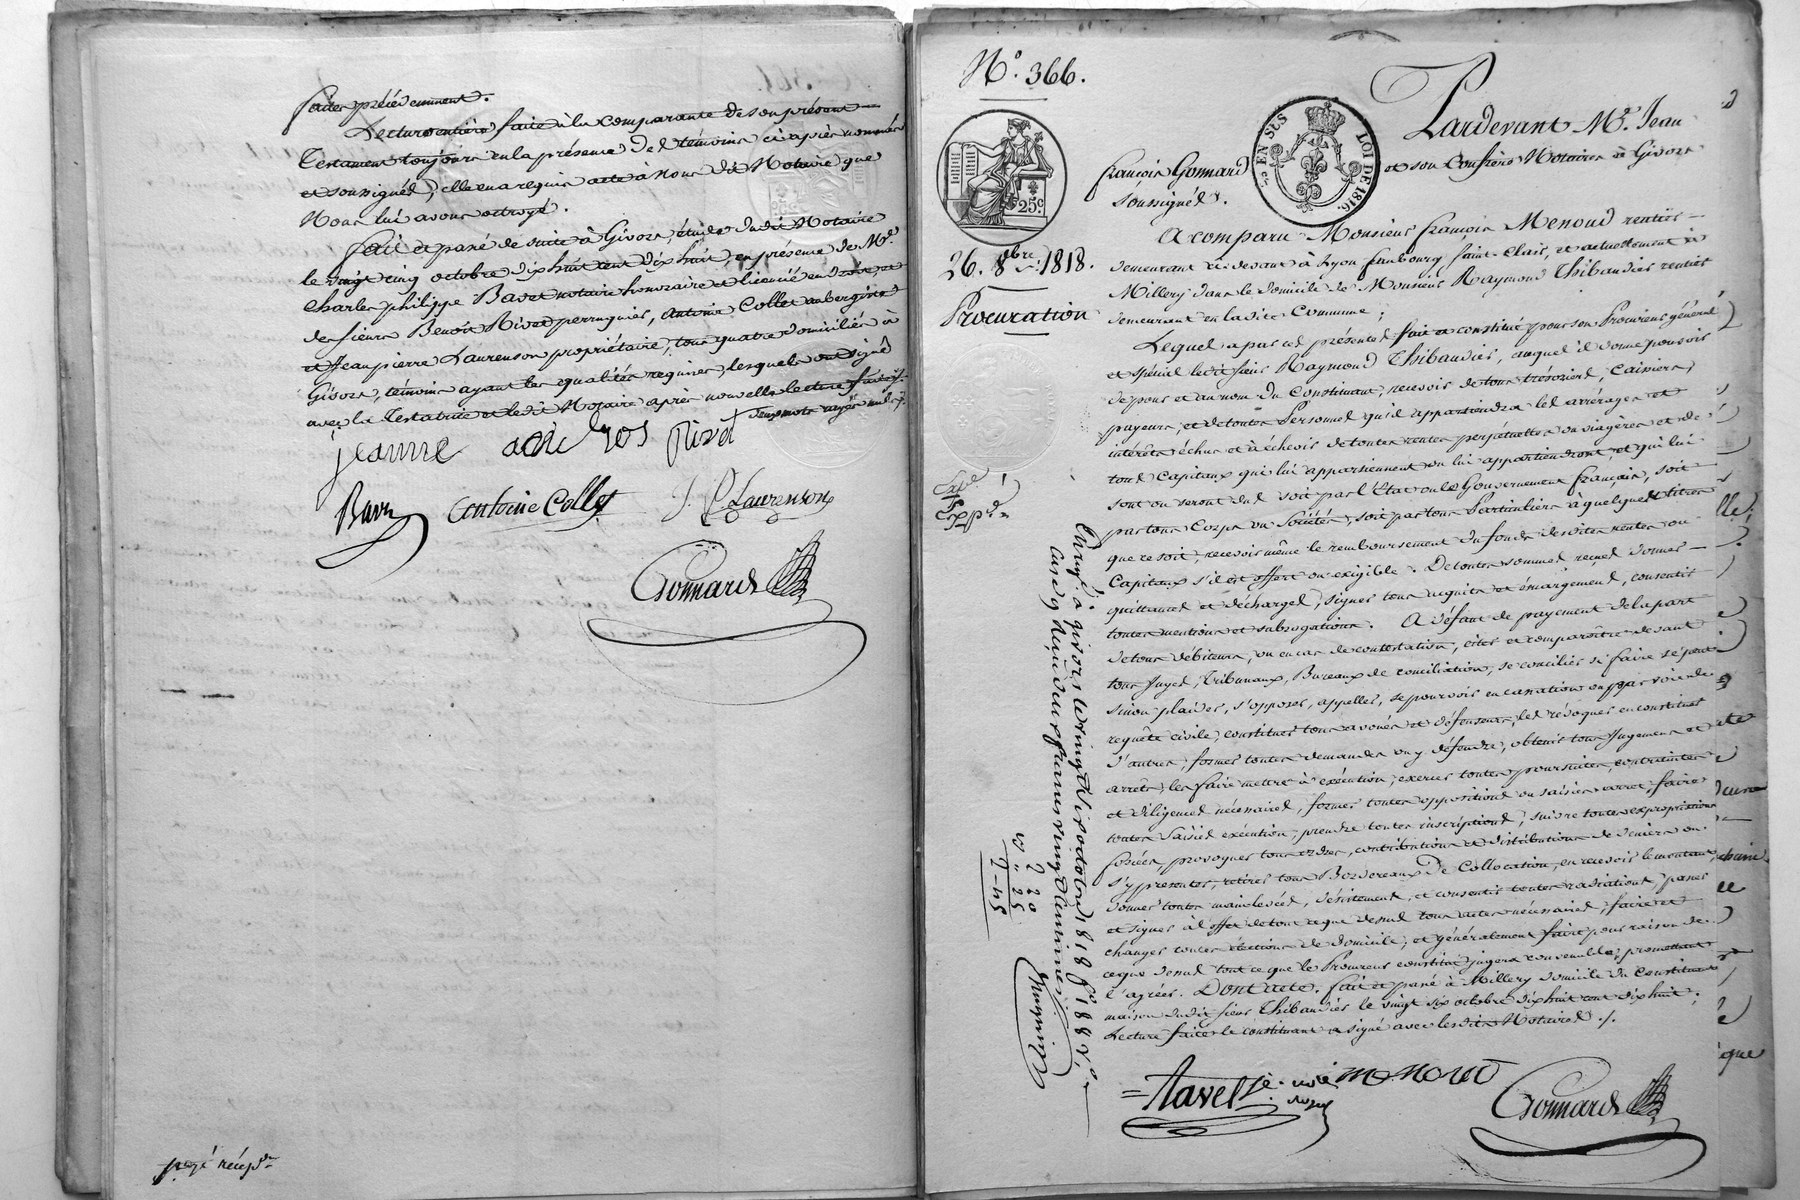 faites précédemment.
Lecture entière faite à la comparante de son présent
Testament toujours en la présence des témoins ci après nommés
et soussignés, elle en a requis acte à Nous dit Notaire que
Nous lui avons octroyé.
fait et passé de suite à Givors, étude dudit Notaire
le vingt cinq octobre dix huit cent dix huit, en présence de Me.
Charles philippe Bavet notaire honoraire et licencié en droit, et
des sieurs Benoît Rivat perruquier, Antoine Collet aubergiste
et Jean pierre Laurenson propriétaire, tous quatre domiciliés à
Givors, témoins ayant les qualités requises, lesquels ont signé
avec la Testatrice et ledit Notaire après nouvelle lecture faite./.
deux mots rayés nuls./.
jeanne
Rivat
Antoine Collet
J. P. Laurenson
Gonnard
No. 366.
25c
EN SUS
LOI DE 1816.
26. 8bre. 1818.
Procuration
Pardevant Me. Jean
françois Gonnard et son Confrère Notaires à Givors
soussignés.
A comparu Monsieur françois Menoud rentier
demeurant ci devant à Lyon faubourg saint Clair, et actuellement à
Millery dans le domicile de Monsieur Raymond Thibaudier rentier
demeurant en la dite Commune;
Lequel a par ces présentes fait et constitué pour son Procureur général
et spécial ledit sieur Raymond Thibaudier, auquel il donne pouvoir
de pour et au nom du Constituant, recevoir de tous trésoriers, Caissiers,
payeurs, et de toutes Personnes qu'il appartiendra les arrérages et
intérêts échus et à échoir de toutes rentes perpétuelles ou viagères et de
tous Capitaux qui lui appartiennent ou lui appartiendront, et qui lui
sont ou seront dus soit par l'Etat ou le Gouvernement français, soit
par tous Corps ou Sociétés, soit par tous Particuliers à quelques titres
que ce soit, recevoir même le remboursement du fonds desdites rentes ou
Capitaux s'il est offert ou exigible. De toutes sommes reçues donner
quittances et décharges, signer tous acquits et émargemens, consentir
toutes mentions et subrogations. A défaut de payement de la part
de tous débiteurs, ou en cas de contestation, citer et comparoître devant
tous Juges, Tribunaux, Bureaux de conciliation, se concilier si faire se peut
sinon plaider, s'opposer, appeller, se pourvoir en cassation ou par voie de
requête civile, constituer tous avoués et défenseurs, les révoquer en constituer
d'autres, former toutes demandes ou y défendre, obtenir tous Jugemens et
arrêts, les faire mettre à exécution, exercer toutes poursuites, contraintes
et diligences nécessaires, former toutes oppositions ou saisies arrêt, faire
toutes Saisies exécution, prendre toutes inscriptions, suivre toutes expropriations
forcées, provoquer tous ordres, contributions et distributions de deniers ou
s'y présenter, retirer tous Bordereaux de Collocation, en recevoir le montant,
donner toutes mainlevées, désistement, et consentir toutes radiations, passer
et signer à l'effet de tout ce que dessus tous actes nécessaires, faire et
changer toutes élections de domicile, et généralement faire pour raison de
ce que dessus tout ce que le Procureur constitué jugera convenable, promettant
l'agréer. Dont acte. fait et passé à Millery domicile du Constituant
maison dudit sieur Thibaudier le vingt six octobre dix huit cent dix huit;
Lecture faite le constituant a signé avec lesdits Notaires./.
Tavel
Menoud
Gonnard
Enregé. à givors le vingt six octobre 1818 fo.
Case 9 reçu deux francs vingt centimes
2 20
25